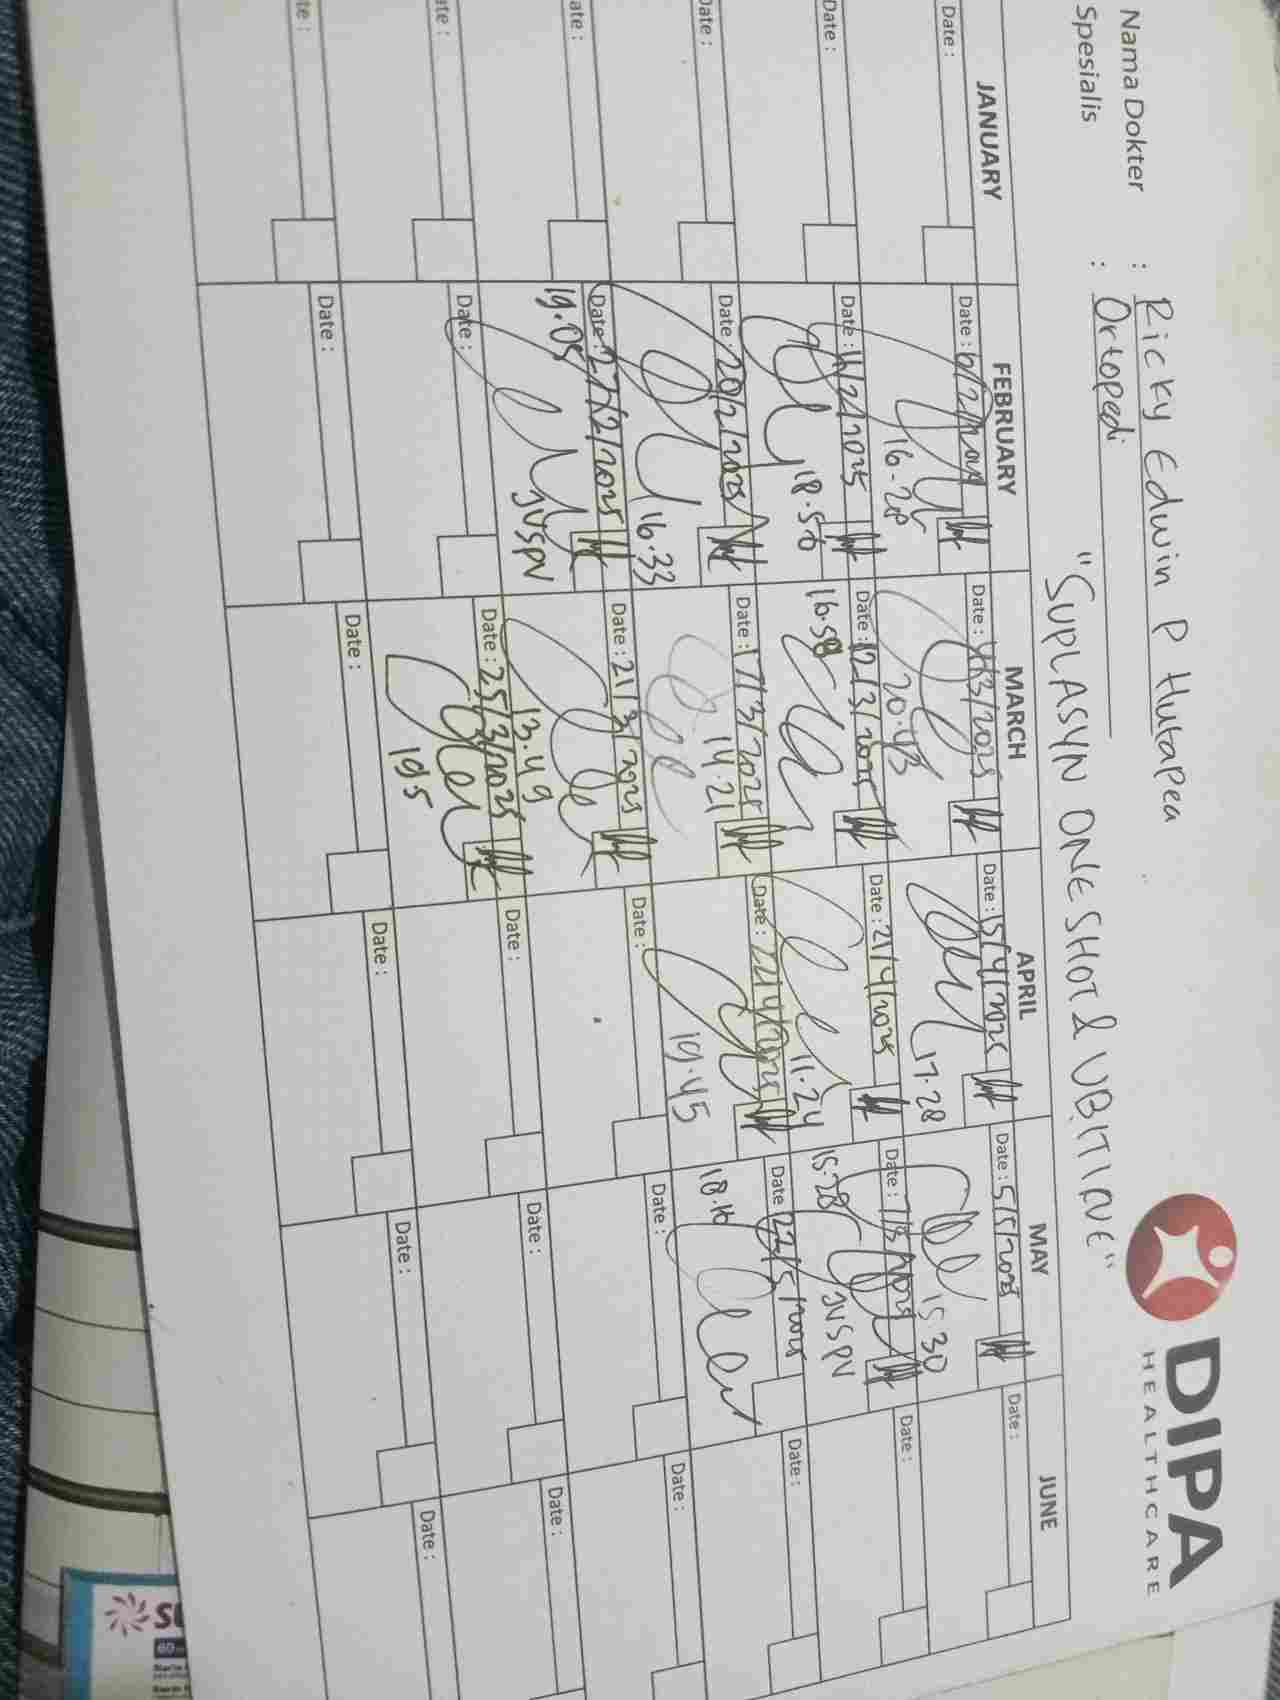 DIPA
HEALTHCARE
Nama Dokter : Ricky Edwin P Hutapea
Spesialis : Ortopedi
"SUPLASYN ONE SHOT & VBITINE"
JANUARY FEBRUARY MARCH APRIL MAY JUNE
Date : Date : 6/2/2025 Date : 4/3/2025 Date : 15/4/2025 Date : 5/5/2025 Date :
16-28 20.43 17.28 15 30
Date : Date : 11/2/2025 Date : 12/3/2025 Date : 21/4/2025 Date : 7/5/2025 Date :
18.50 16.58 11.24 15.28 JVSPV
Date : Date : 20/2/2025 Date : 17/3/2025 Date : 22/4/2025 Date 22/5/2025 Date :
16.33 14.21 19.45 18.16
ate : Date : 27/2/2025 Date : 21/3/2025 Date : Date : Date :
19.05 JVSPV 13.49
ate : Date : Date : 25/3/2025 Date : Date : Date :
195
te : Date : Date : Date : Date : Date :
60